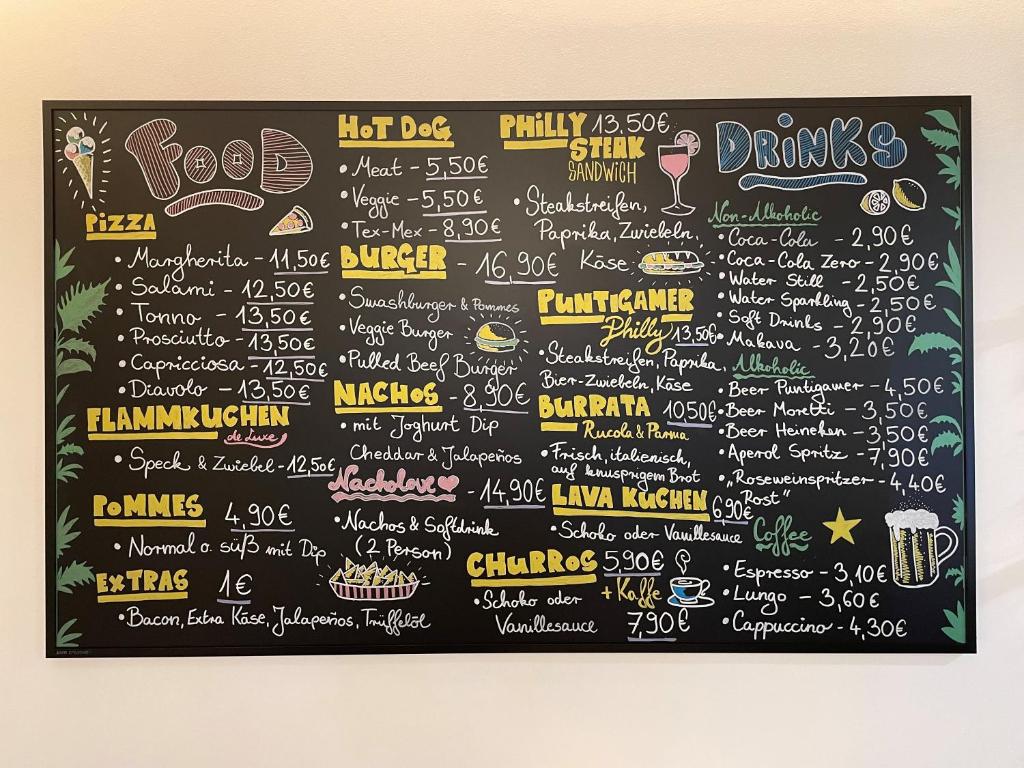 FOOD
PIZZA
• Margherita - 11,50€
• Salami - 12,50€
• Tonno - 13,50€
• Prosciutto - 13,50€
• Capricciosa - 12,50€
• Diavolo - 13,50€
FLAMMKUCHEN
de Luxe
• Speck & Zwiebel - 12,50€
POMMES 4,90€
• Normal o. süß mit Dip
EXTRAS 1€
• Bacon, Extra Käse, Jalapeños, Trüffelöl
HOT DOG
• Meat - 5,50€
• Veggie - 5,50€
• Tex-Mex - 8,90€
BURGER - 16,90€
• Smashburger & Pommes
• Veggie Burger
• Pulled Beef Burger
NACHOS - 8,90€
• mit Joghurt Dip
Cheddar & Jalapeños
Nacholove - 14,90€
• Nachos & Softdrink
(2 Person)
PHILLY 13,50€
STEAK
SANDWICH
• Steakstreifen,
Paprika, Zwiebeln,
Käse
PUNTIGAMER
Philly 13,50€
• Steakstreifen, Paprika,
Bier-Zwiebeln, Käse
BURRATA 10,50€
Rucola & Parma
• Frisch, italienisch,
auf knusprigem Brot
LAVA KUCHEN 6,90€
• Schoko oder Vanillesauce
CHURROS 5,90€
• Schoko oder + Kaffe
Vanillesauce 7,90€
DRINKS
Non-Alkoholic
• Coca-Cola - 2,90€
• Coca-Cola Zero - 2,90€
• Water Still - 2,50€
• Water Sparkling - 2,50€
• Soft Drinks - 2,90€
• Makava - 3,20€
Alkoholic
• Beer Puntigamer - 4,50€
• Beer Moretti - 3,50€
• Beer Heineken - 3,50€
• Aperol Spritz - 7,90€
• „Roseweinspritzer - 4,40€
Rost"
Coffee
• Espresso - 3,10€
• Lungo - 3,60€
• Cappuccino - 4,30€